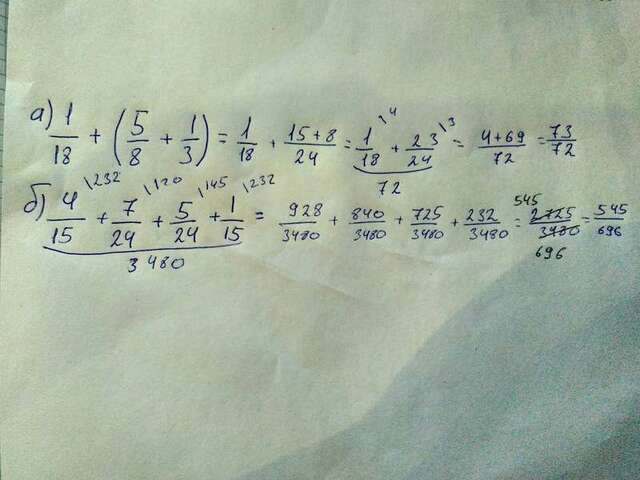 а) 1/18 + (5/8 + 1/3) = 1/18 + 15+8/24 = 1/18 \4 + 23/24 \3 = 4+69/72 = 73/72
72
б) 4/15 \232 + 7/24 \120 + 5/24 \145 + 1/15 \232 = 928/3480 + 840/3480 + 725/3480 + 232/3480 = 545 2725/3480 696 = 545/696
3480